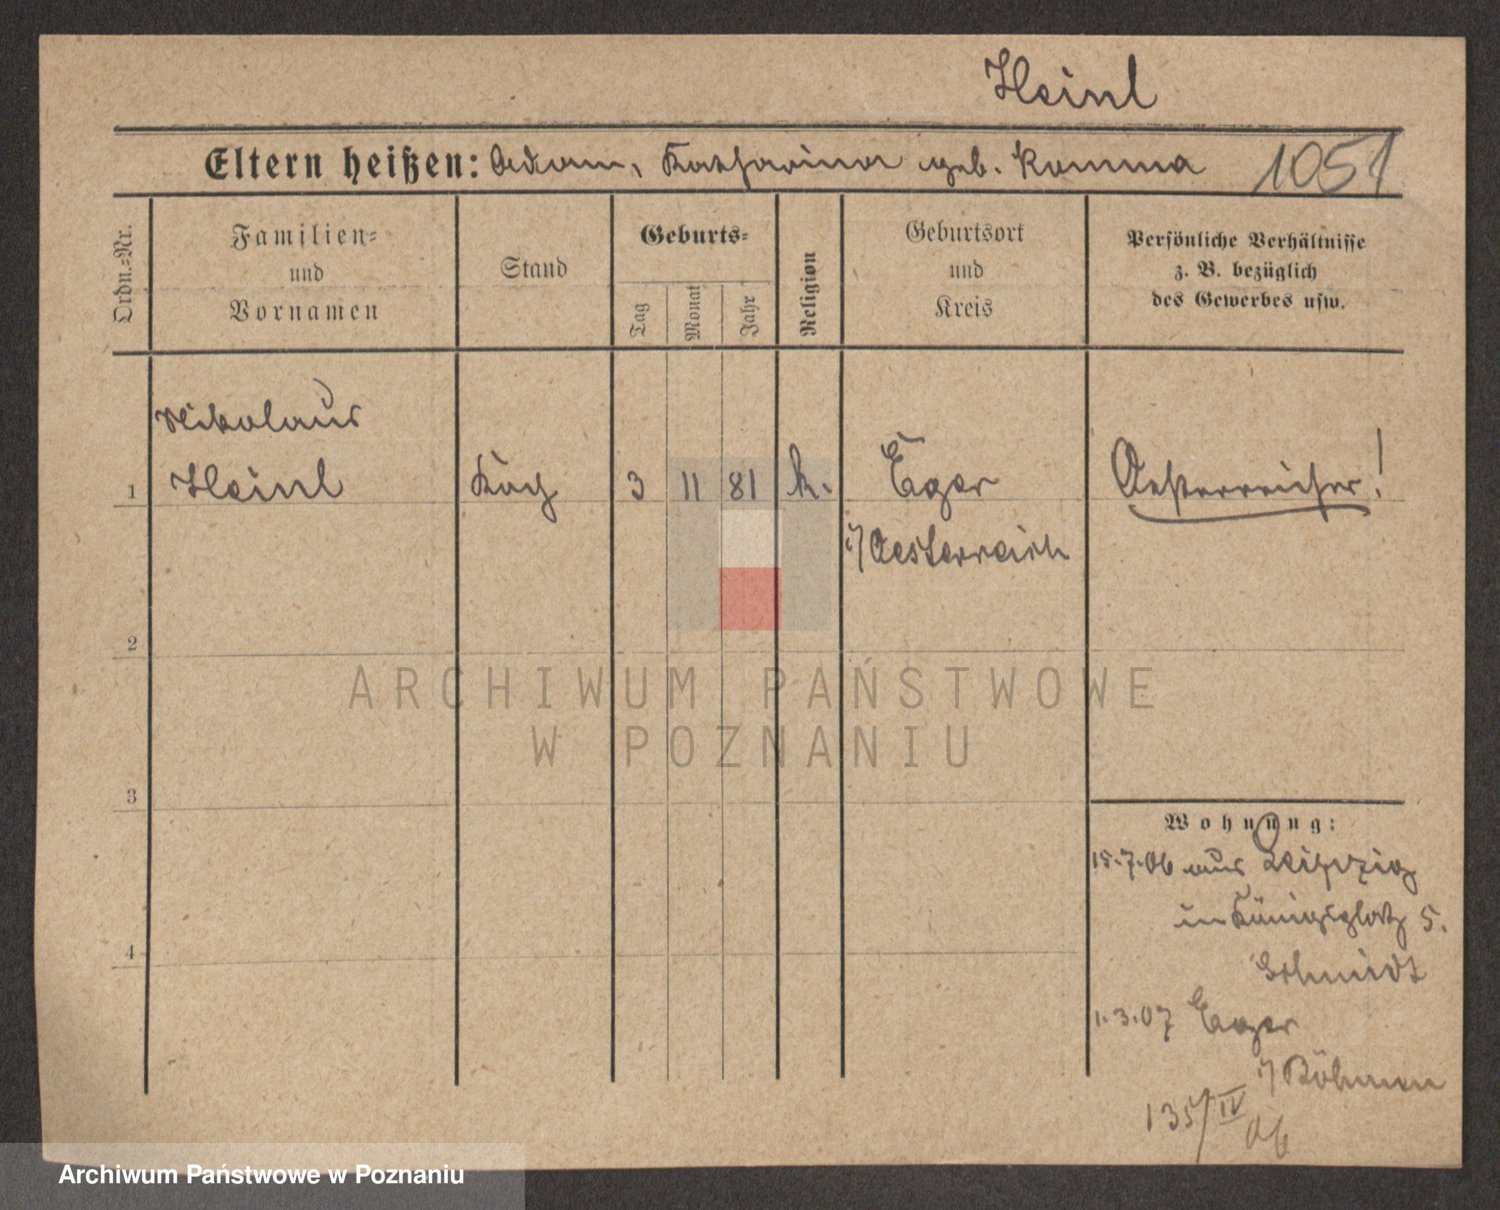 Heinl
Eltern heißen: Adam, Katharina geb. Komma 1051
Ordn.-Nr.
Familien-
und
Vornamen
Stand
Geburts-
Tag
Monat
Jahr
Religion
Geburtsort
und
Kreis
Persönliche Verhältnisse
z. B. bezüglich
des Gewerbes usw.
Nikolaus
1 Heinl 3 11 81 k. Eger Oesterreicher!
i/Oesterreich
2
ARCHIWUM PAŃSTWOWE
W POZNANIU
3
Wohnung:
15.7.06 aus Leipzig
in Königsplatz 5.
Schmidt
4
1.3.07 Eger
i/Böhmen
135/IV 06
Archiwum Państwowe w Poznaniu